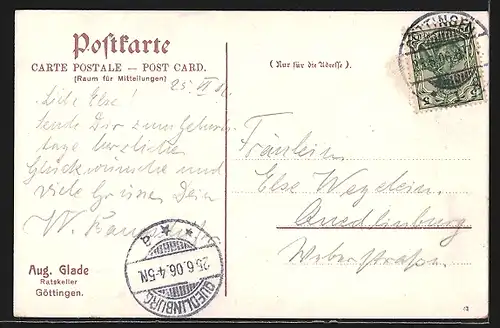 Postkarte
CARTE POSTALE — POST CARD.
(Raum für Mitteilungen)
(Nur für die Adresse)
25. VI 06.
Liebe Else!
Sende Dir zum Geburts-
tage herzliche
Glückwünsche und
viele Grüsse Dein
W.
Fräulein
Else Wegelein.
Quedlinburg
Weberstrasse
GÖTTINGEN
QUEDLINBURG
25.6.06.4-5N.
Aug. Glade
Ratskeller
Göttingen.